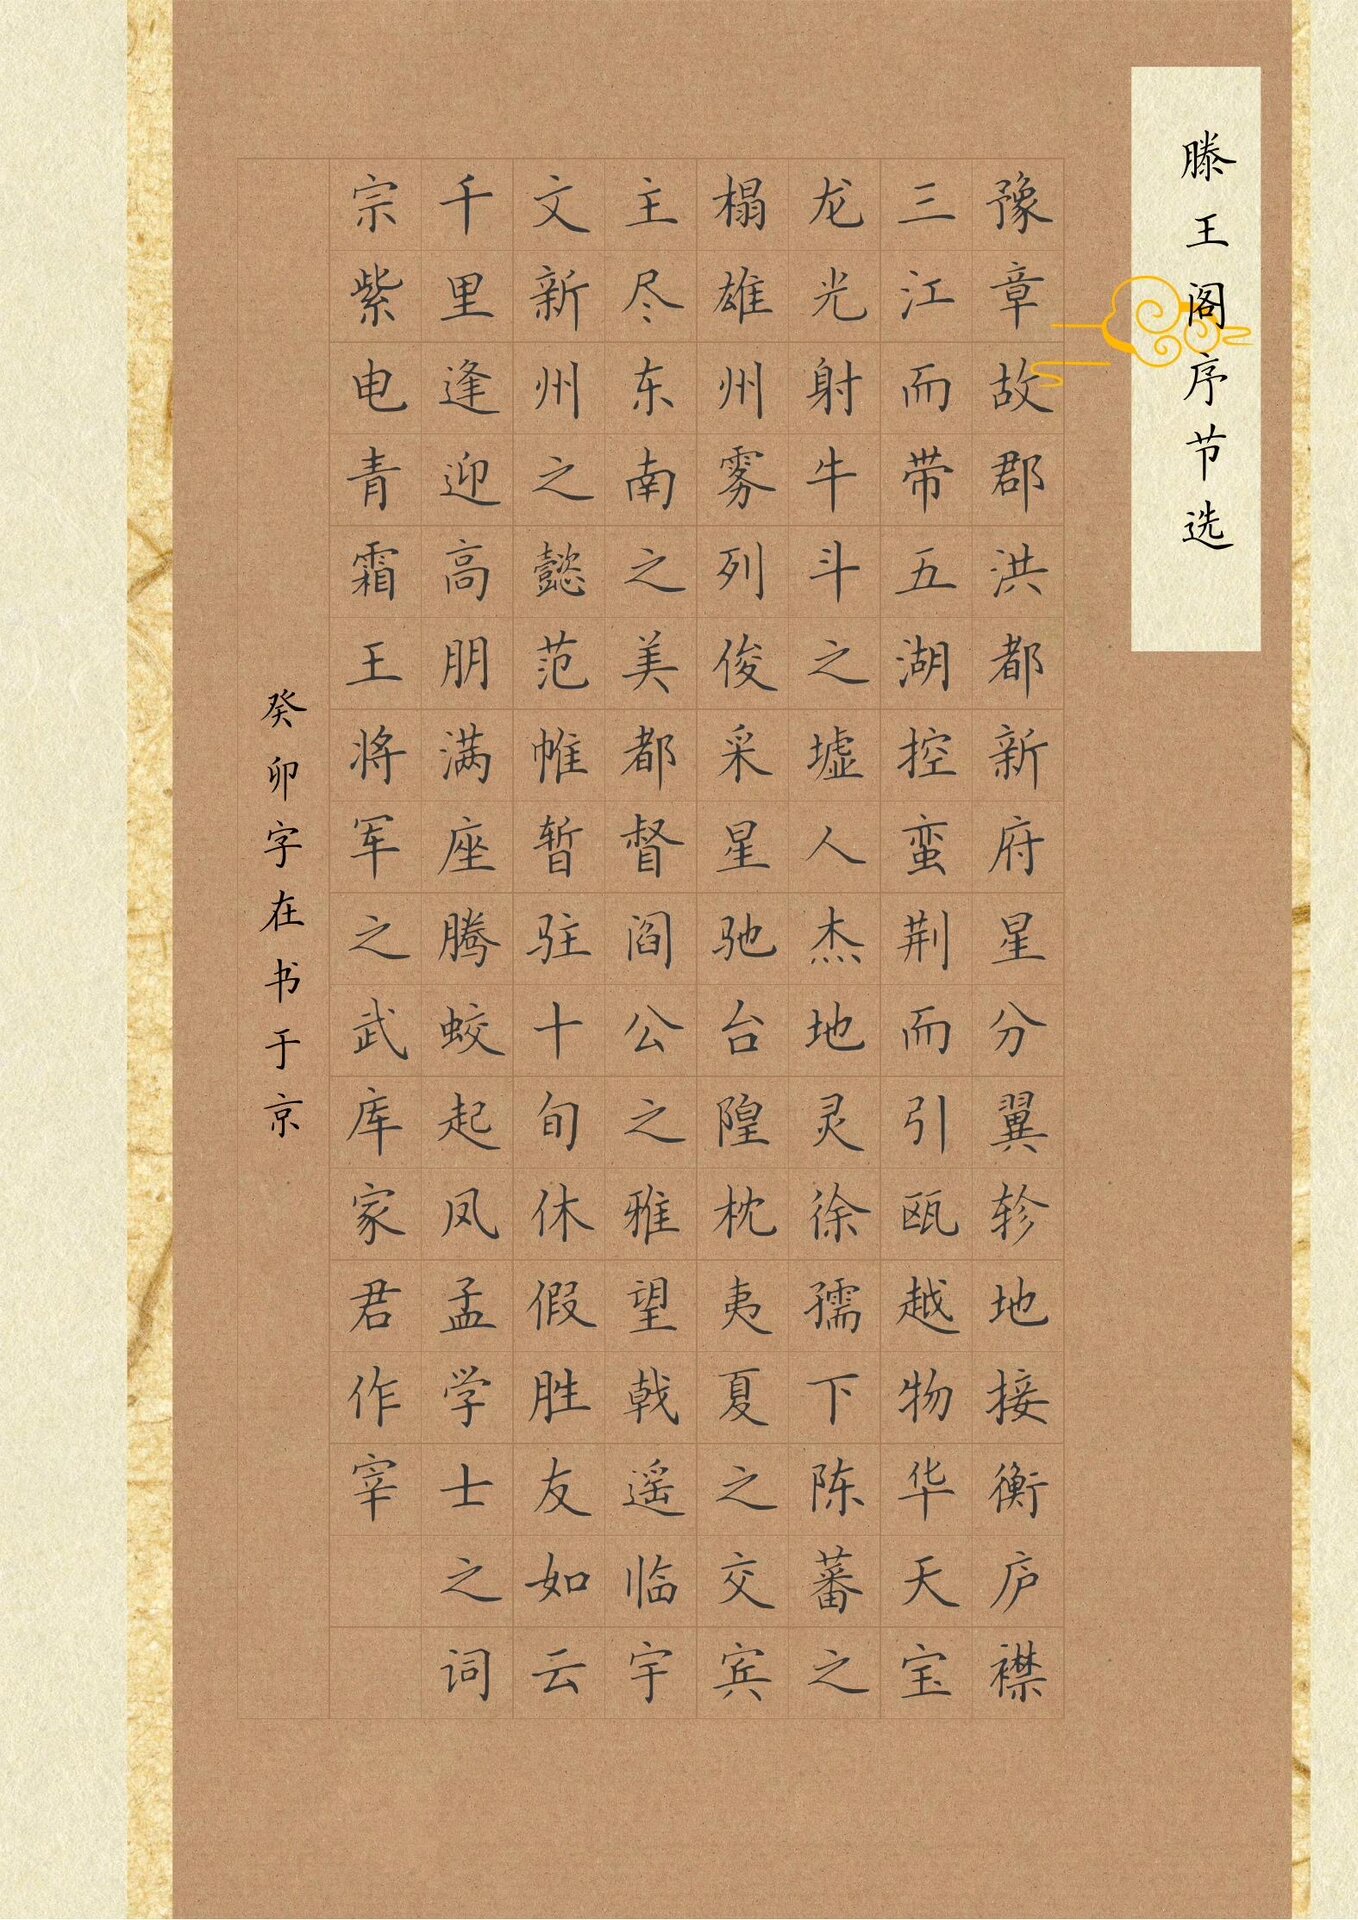 滕王阁序节选
豫章故郡洪都新府星分翼轸地接衡庐襟
三江而带五湖控蛮荆而引瓯越物华天宝
龙光射牛斗之墟人杰地灵徐孺下陈蕃之
榻雄州雾列俊采星驰台隍枕夷夏之交宾
主尽东南之美都督阎公之雅望戟遥临宇
文新州之懿范帷暂驻十旬休假胜友如云
千里逢迎高朋满座腾蛟起凤孟学士之词
宗紫电青霜王将军之武库家君作宰
癸卯字在书于京